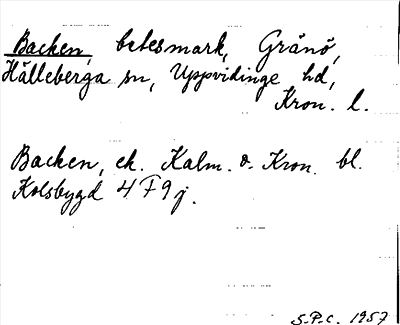 Backen, betesmark, Gränö,
Hälleberga sn, Uppvidinge hd,
Kron. l.
Backen, ek. Kalm. o. Kron. bl.
Kolsbygd 4 F 9 j.
S.P.C. 1957